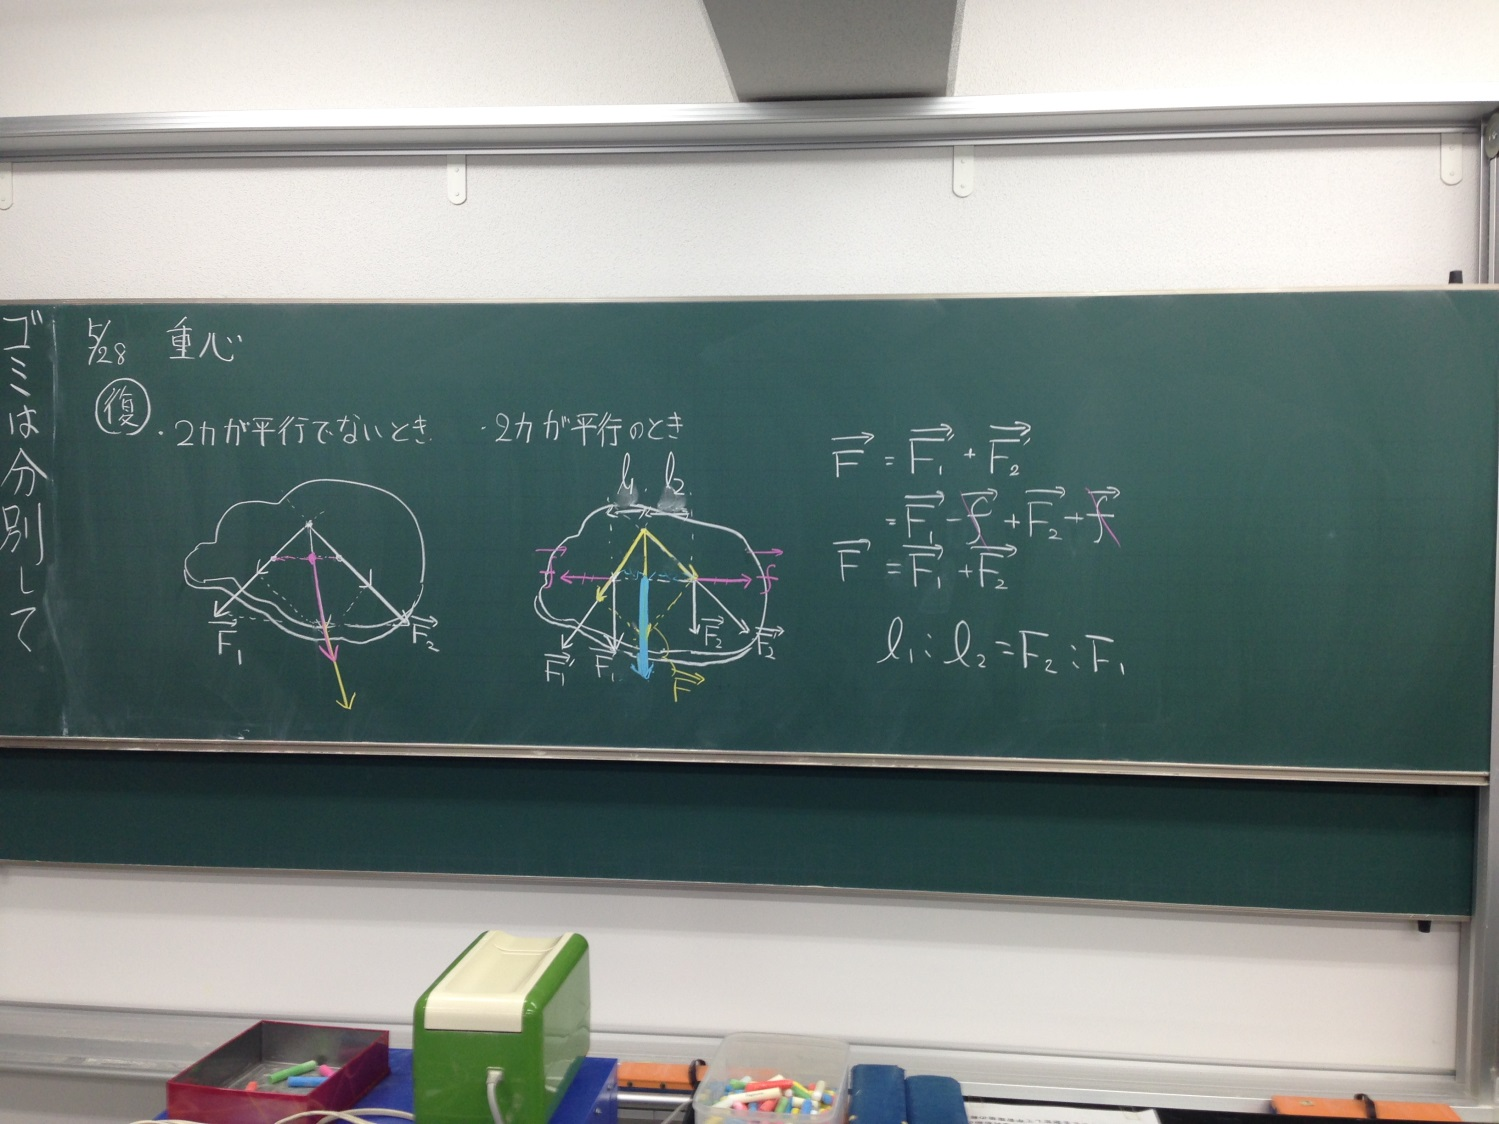 ゴミは分別して
5/28 重心
復
・2力が平行でないとき
F₁
F₂
・2力が平行のとき
l₁ l₂
f f
F₁' F₁ F₂ F₂'
F
F = F₁' + F₂'
= F₁ - f + F₂ + f
F = F₁ + F₂
l₁ : l₂ = F₂ : F₁